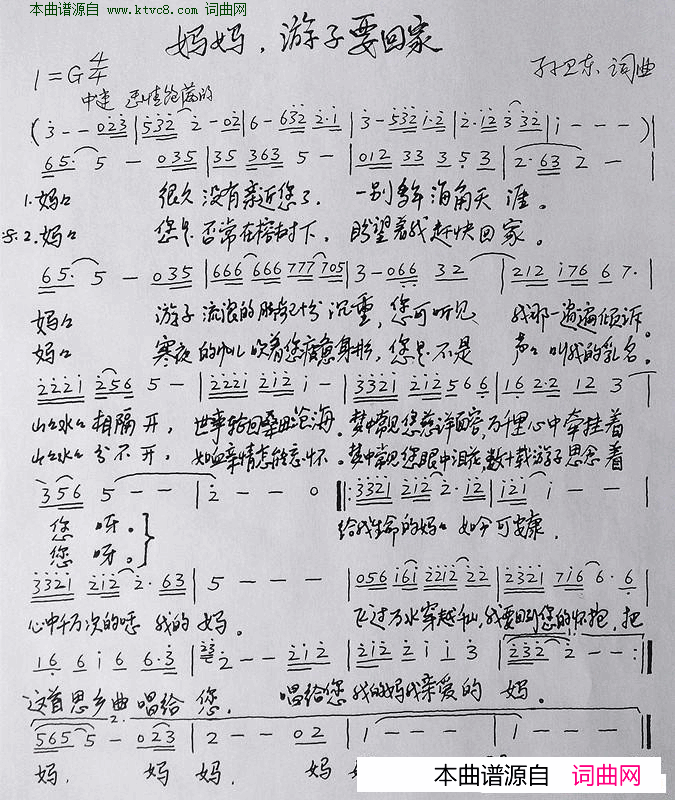 本曲谱源自
www.ktvc8.com 词曲网
妈妈，游子要回家
1=G 4/4
孙卫东 词曲
中速
(3--023|532 2-02|6-632 2·1|3-532 1·2|2·12 3 32|1---)|
65·5-035|35 363 5-|012 33 3 5 3|2·63 2-|
1.妈々 很久没有亲近您了. 一别多年海角天涯。
2.妈々 您是否常在榕树下. 盼望着我赶快回家。
65·5-035|666 666 777 705|3-066 32|212 176 6 7·|
妈々 游子流浪的 沉重, 您可听见 我那一遍遍倾诉。
妈々 寒夜的 吹着您疲惫身形, 您是不是 声々叫我的乳名。
2221 256 5-|2221 212 1-|3321 212 5 6 6|16 2·2 12 3|
山々水々相隔开, 世事轮回桑田沧海. 梦中常见您慈详面容, 万千里心中牵挂着
山々水々分不开, 如血亲情怎能忘怀. 梦中常见您眼中泪花 数十载游子思念着
356 5--|2--0|:3321 212 2·12|121 1--|
您 呀. 给我生命的妈々 如今可安康.
您 呀.
3321 212 2·63|5---|056 161 2212 22|2321 716 6·6|
心中千万次的呼 我的妈。 飞过万水穿越千山, 我要回到您的怀抱, 把
16 6 1 6 6·3|2--212|212 2 1 1 3|232 2--:|
这首思乡曲唱给您. 唱给您我的妈我亲爱的 妈.
2.
565 5-023|2--02|1---|1---|
妈. 妈 妈. 妈
本曲谱源自 词曲网